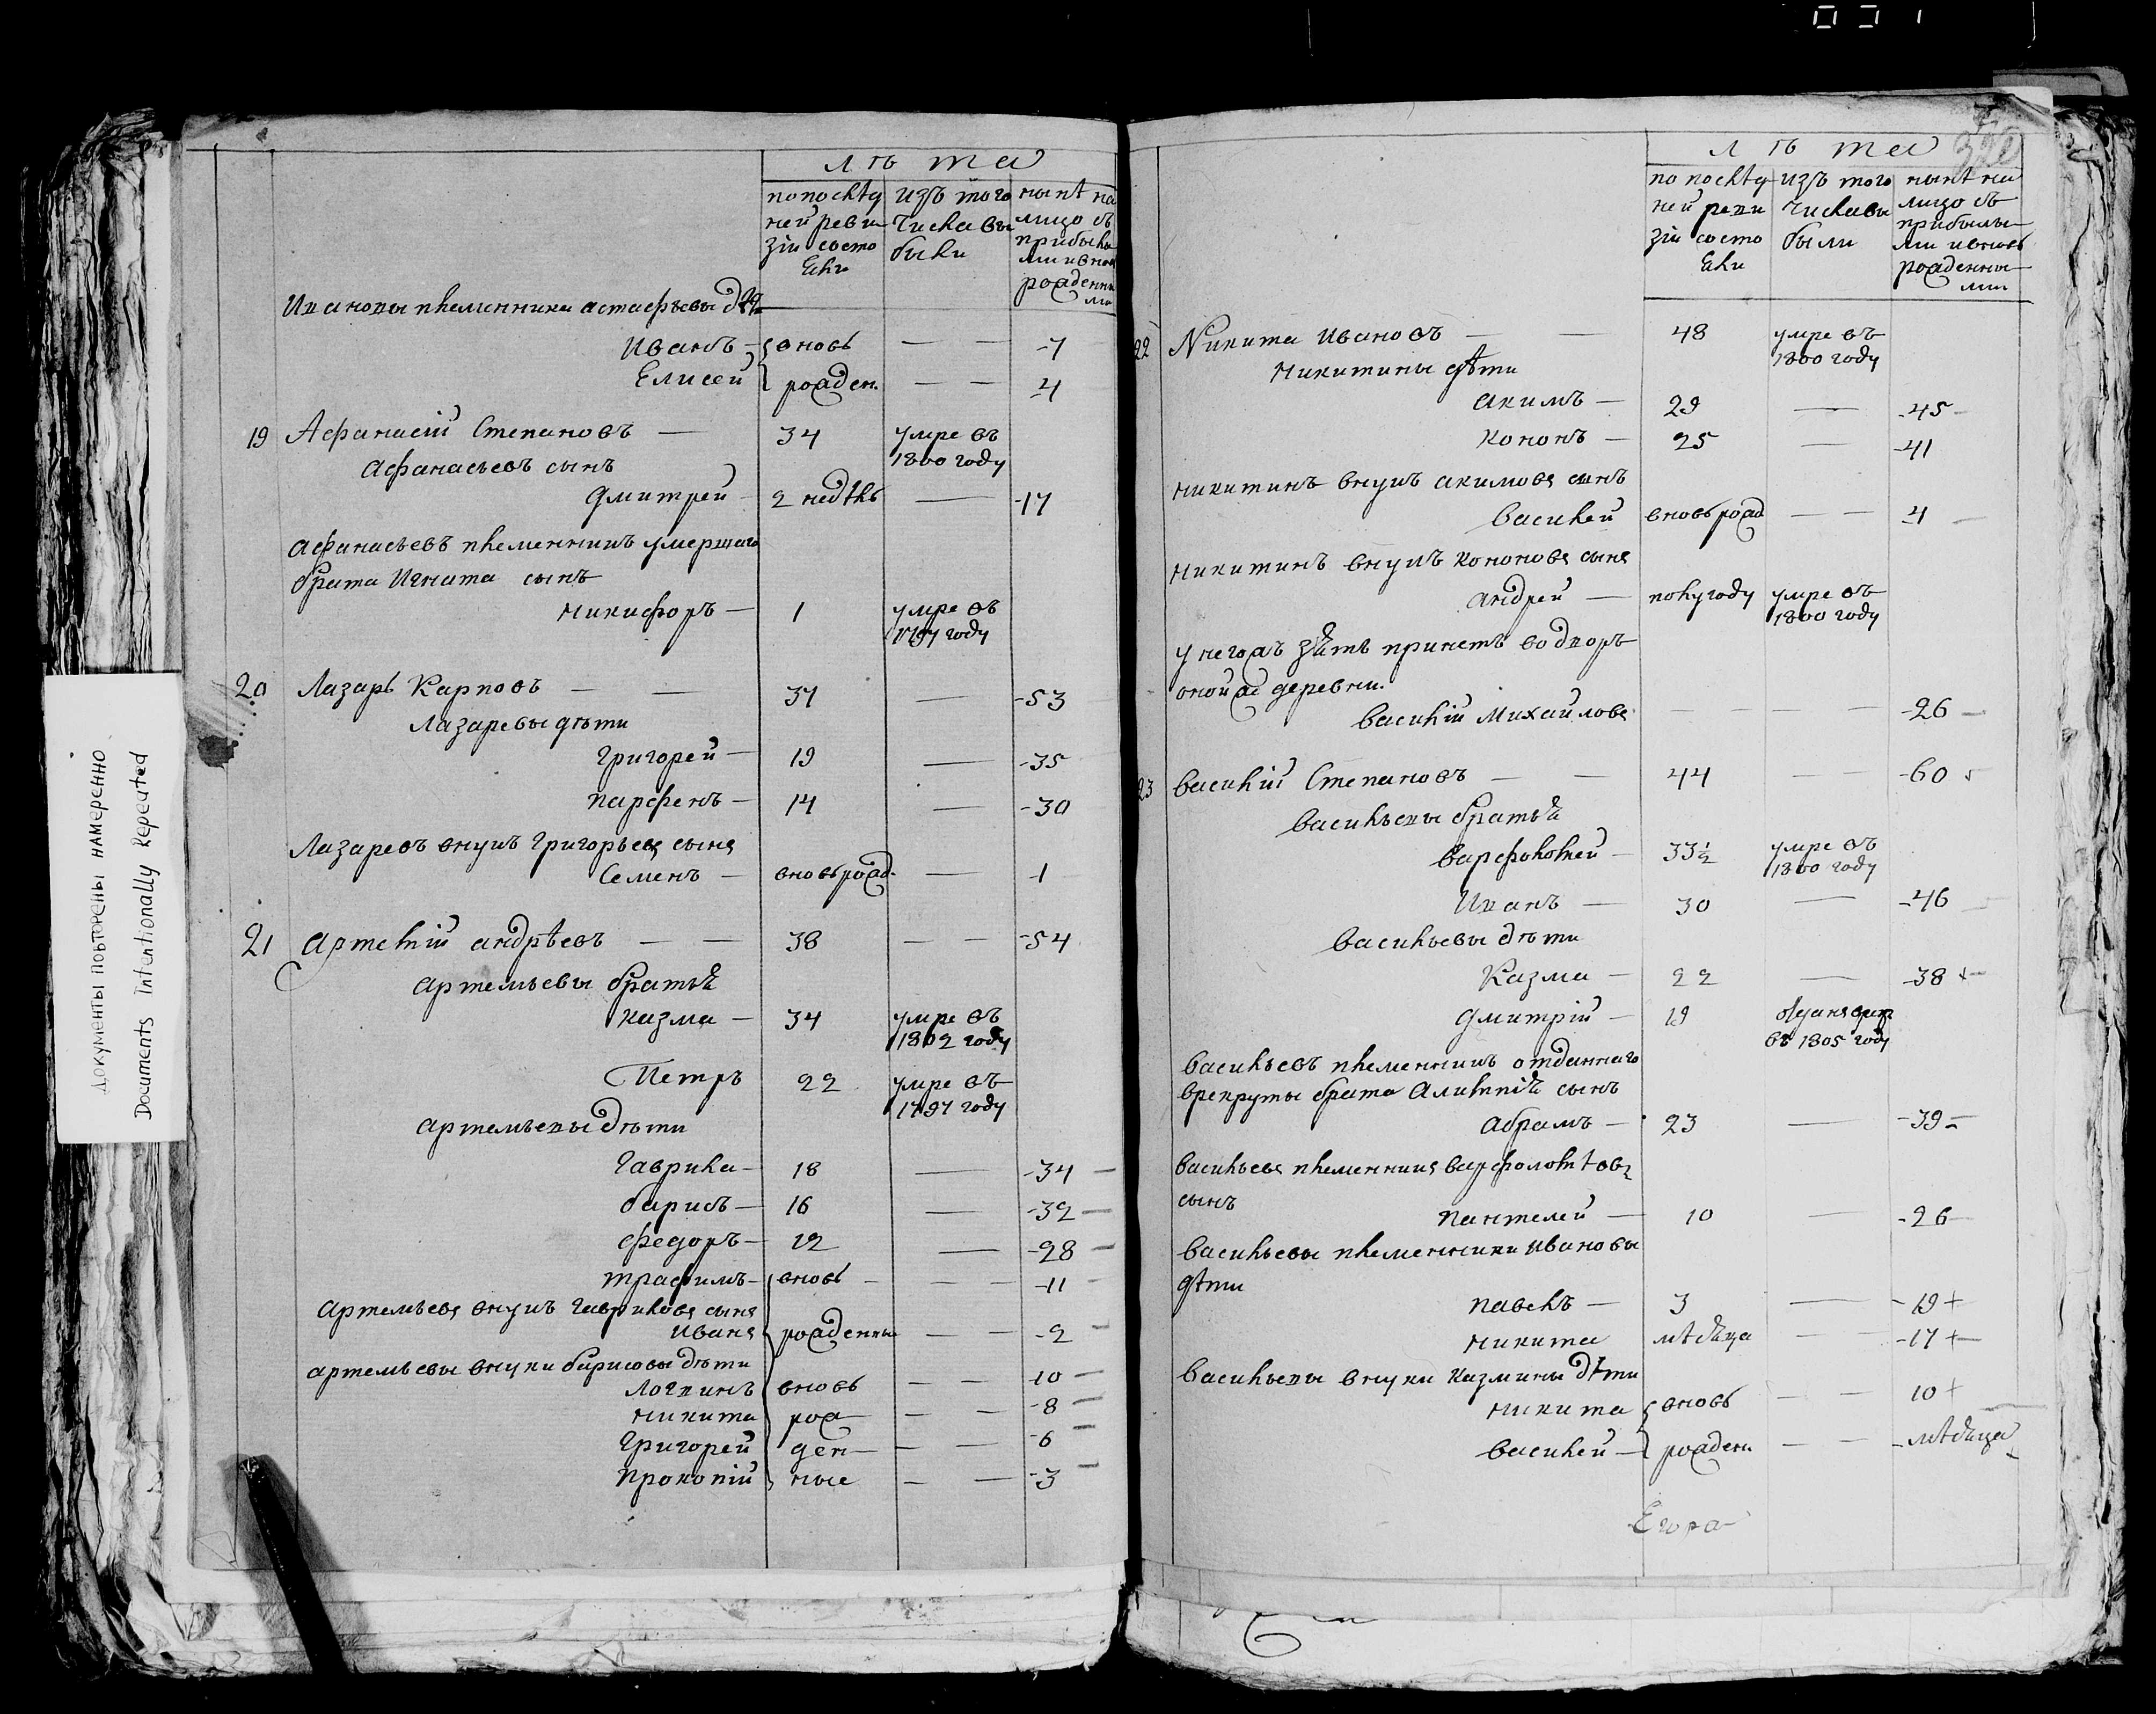 031
документы повторены намеренно
Documents Intentionally Repeated
лѣта
по послѣд изъ того нынѣ на
ней реви числа вы лицо съ
зіи состо были прибылы
яли ми и вновь
рожденны
ми
Ивановы племянники астафьевы дѣти
Иванъ вновь — — 7
Елисей рожден. — — 4
19 Афанасий Степановъ — 34 умре въ
1800 году
Афанасьевъ сынъ
Дмитрей 2 недѣль — 17
Афанасьевъ племянникъ умершаго
брата Игната сынъ
Никифоръ — 1 умре въ
1797 году
20 Лазарь Карповъ — — 37 — 53
Лазаревы дѣти
Григорей — 19 — 35
Парфенъ — 14 — 30
Лазаревъ внукъ Григорьевъ сынъ
Семенъ — вновь рожд. — 1
21 Артемий андрѣевъ — — 38 — — 54
Артемьевы братья
Казма — 34 умре въ
1802 году
Петръ 22 умре въ
1797 году
Артемьевы дѣти
Гаврила — 18 — 34
барисъ — 16 — 32
Федоръ — 12 — 28
трафимъ — вновь — — 11
Артемьевъ внукъ Гавриловъ сынъ
Иванъ рожденные — — 2
артемьевы внуки барисовы дѣти
Логвинъ вновь — — 10
Никита рож — — 8
Григорей ден — — 6
Прокопій ные — — 3
320
лѣта
по послѣд изъ того нынѣ на
ней реви числа вы лицо съ
зіи состо были прибылы
яли ми и вновь
рожденны
ми
22 Никита Ивановъ — — 48 умре въ
1800 году
Никитины дѣти
акимъ — 29 — 45
Кононъ — 25 — 41
Никитинъ внукъ акимовъ сынъ
Василей вновь рожд — — 4
Никитинъ внукъ Кононовъ сынъ
андрей — полугоду умре въ
1800 году
у него жъ зять принетъ во дворъ
оной же деревни.
Василій Михайловъ — — — — 26
23 Василій Степановъ — — 44 — 60
Васильевы братья
Варфоломей — 33½ умре въ
1800 году
Иванъ — 30 — 46
Васильевы дѣти
Казма — 22 — 38 +
Дмитрій — 19 отданъ врек
въ 1805 году
Васильевъ племянникъ отданнаго
врекруты брата Алимпія сынъ
Абрамъ — 23 — 39
Васильевъ племянникъ Варфоломѣевъ
сынъ
Пантелей — 10 — 26
Васильевы племянники Ивановы
дѣти
Павелъ — 3 — 19 +
Никита мѣсяца — — 17 +
Васильевы внуки Казмины дѣти
Никита вновь — — 10 +
Василей — рожден — — мѣсяца
Егора